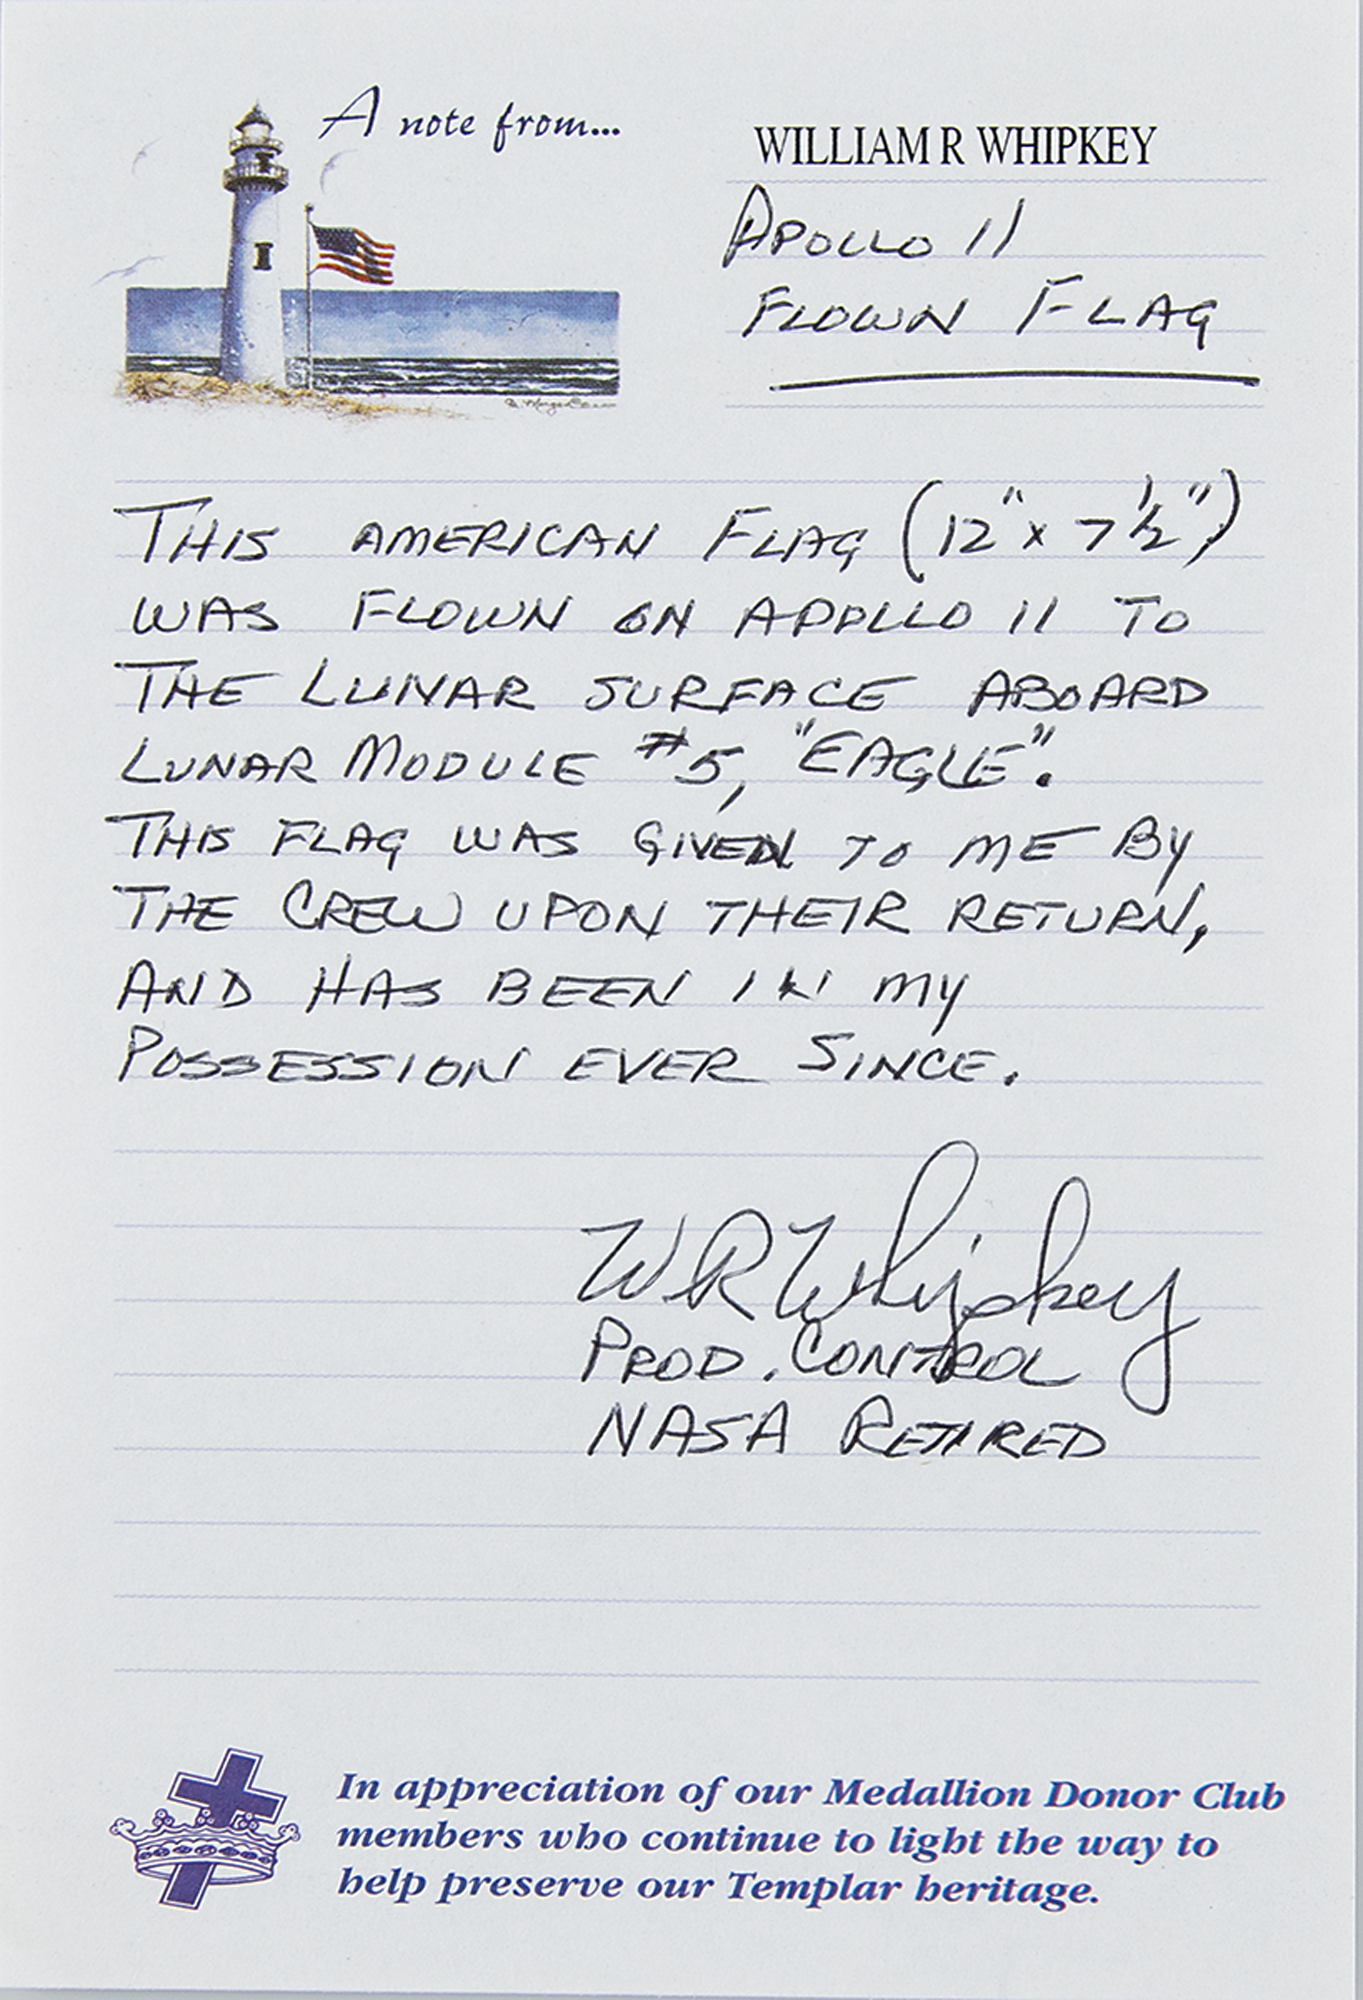 A note from...
WILLIAM R WHIPKEY
APOLLO 11
FLOWN FLAG
THIS AMERICAN FLAG (12" x 7 1/2")
WAS FLOWN ON APOLLO 11 TO
THE LUNAR SURFACE ABOARD
LUNAR MODULE #5, "EAGLE".
THIS FLAG WAS GIVEN TO ME BY
THE CREW UPON THEIR RETURN,
AND HAS BEEN IN MY
POSSESSION EVER SINCE.
WR Whipkey
PROD. CONTROL
NASA RETIRED
In appreciation of our Medallion Donor Club
members who continue to light the way to
help preserve our Templar heritage.